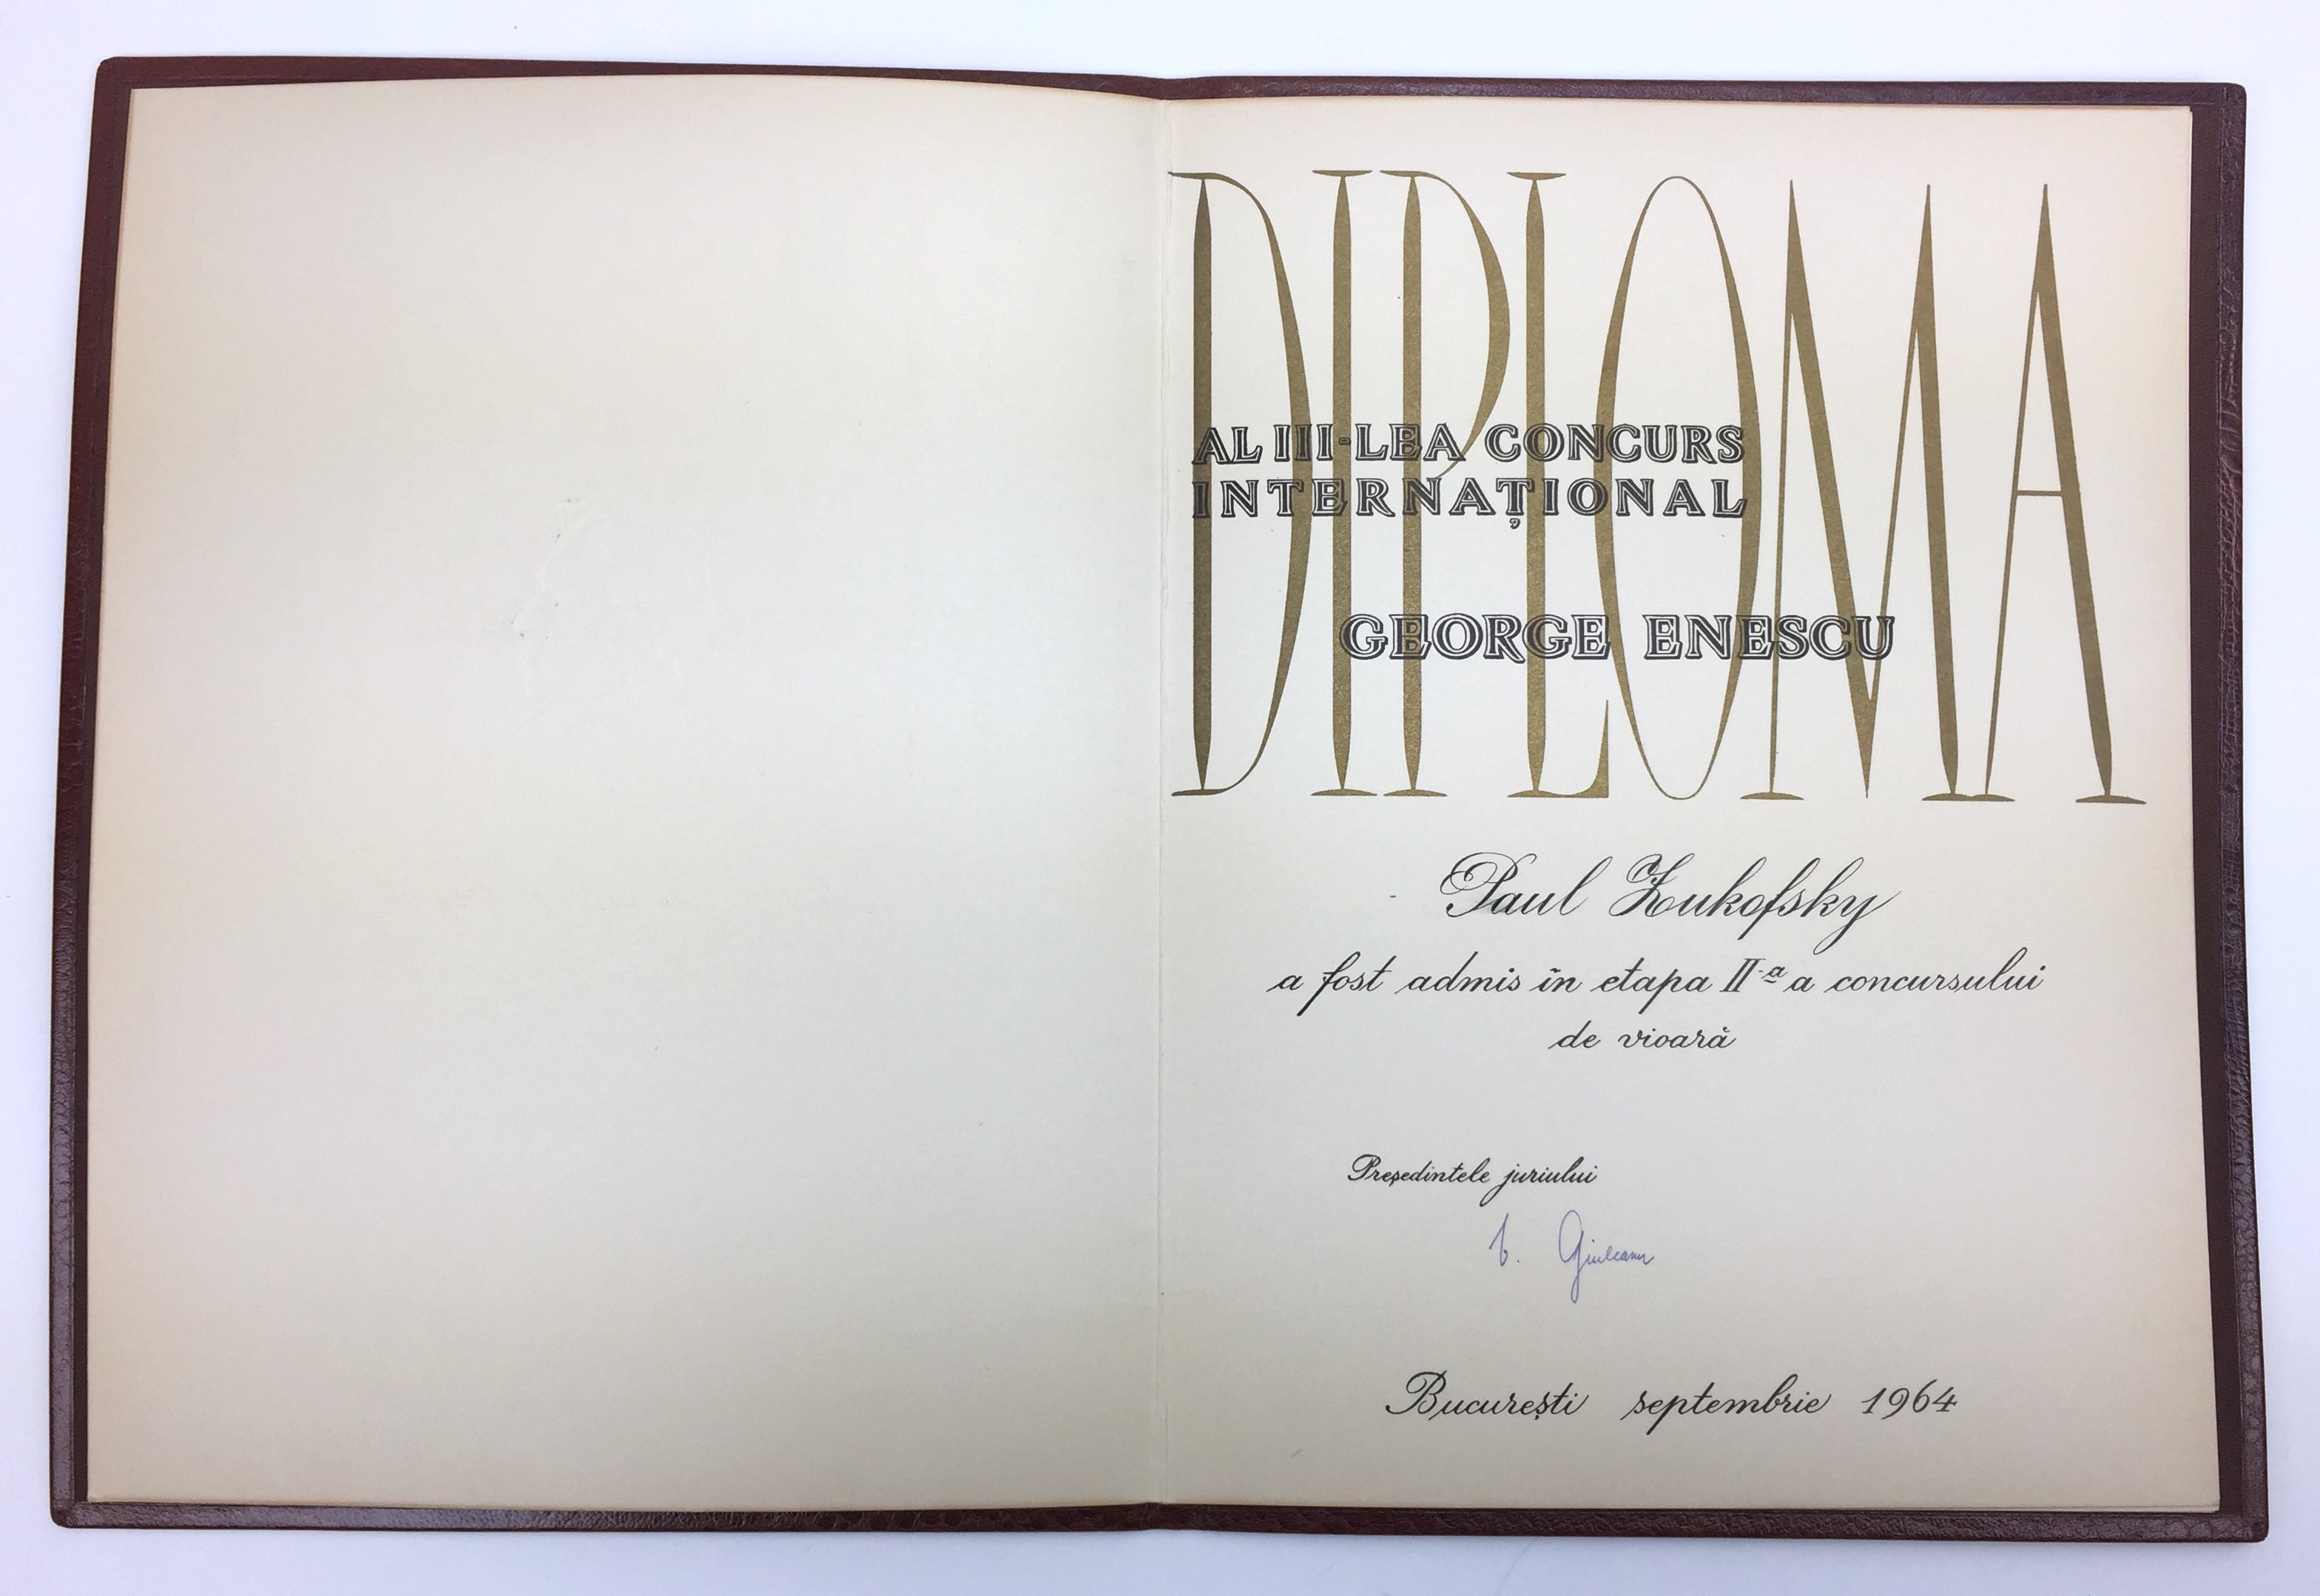 DIPLOMA
AL III-LEA CONCURS
INTERNAȚIONAL
GEORGE ENESCU
Paul Zukofsky
a fost admis în etapa II-a a concursului
de vioară
Președintele juriului
Giuleanu
București septembrie 1964